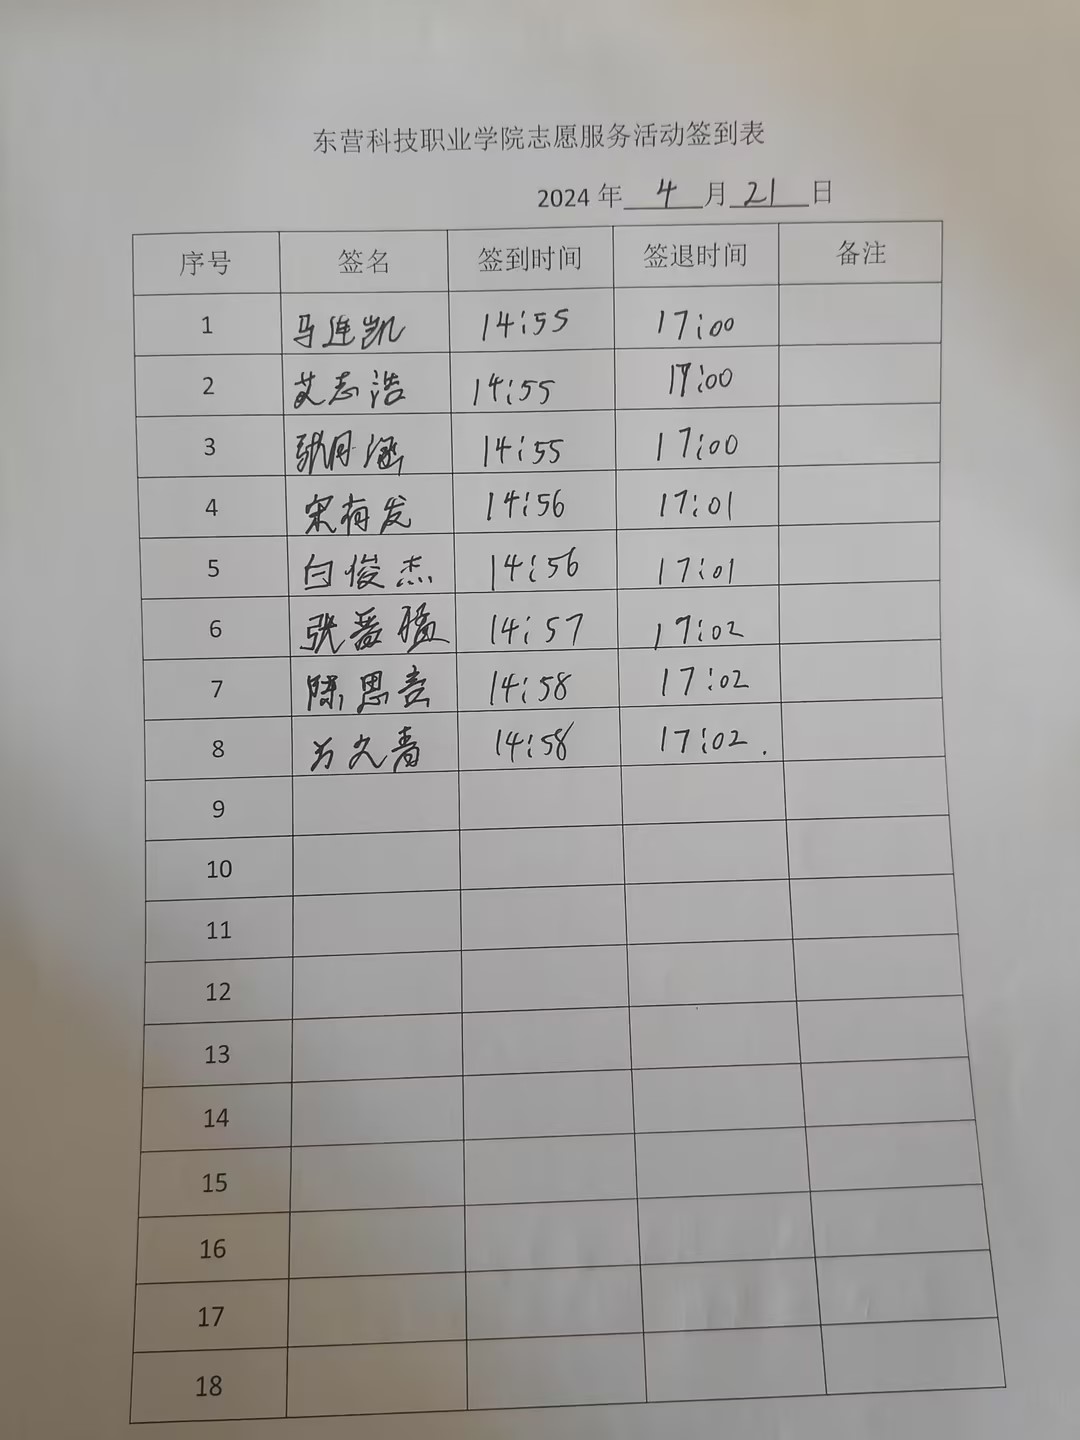 东营科技职业学院志愿服务活动签到表
2024 年 4 月 21 日
序号 签名 签到时间 签退时间 备注
1 马连凯 14:55 17:00
2 艾志浩 14:55 17:00
3 张月涵 14:55 17:00
4 宋有发 14:56 17:01
5 白俊杰 14:56 17:01
6 张 14:57 17:02
7 陈思 14:58 17:02
8 14:58 17:02.
9
10
11
12
13
14
15
16
17
18